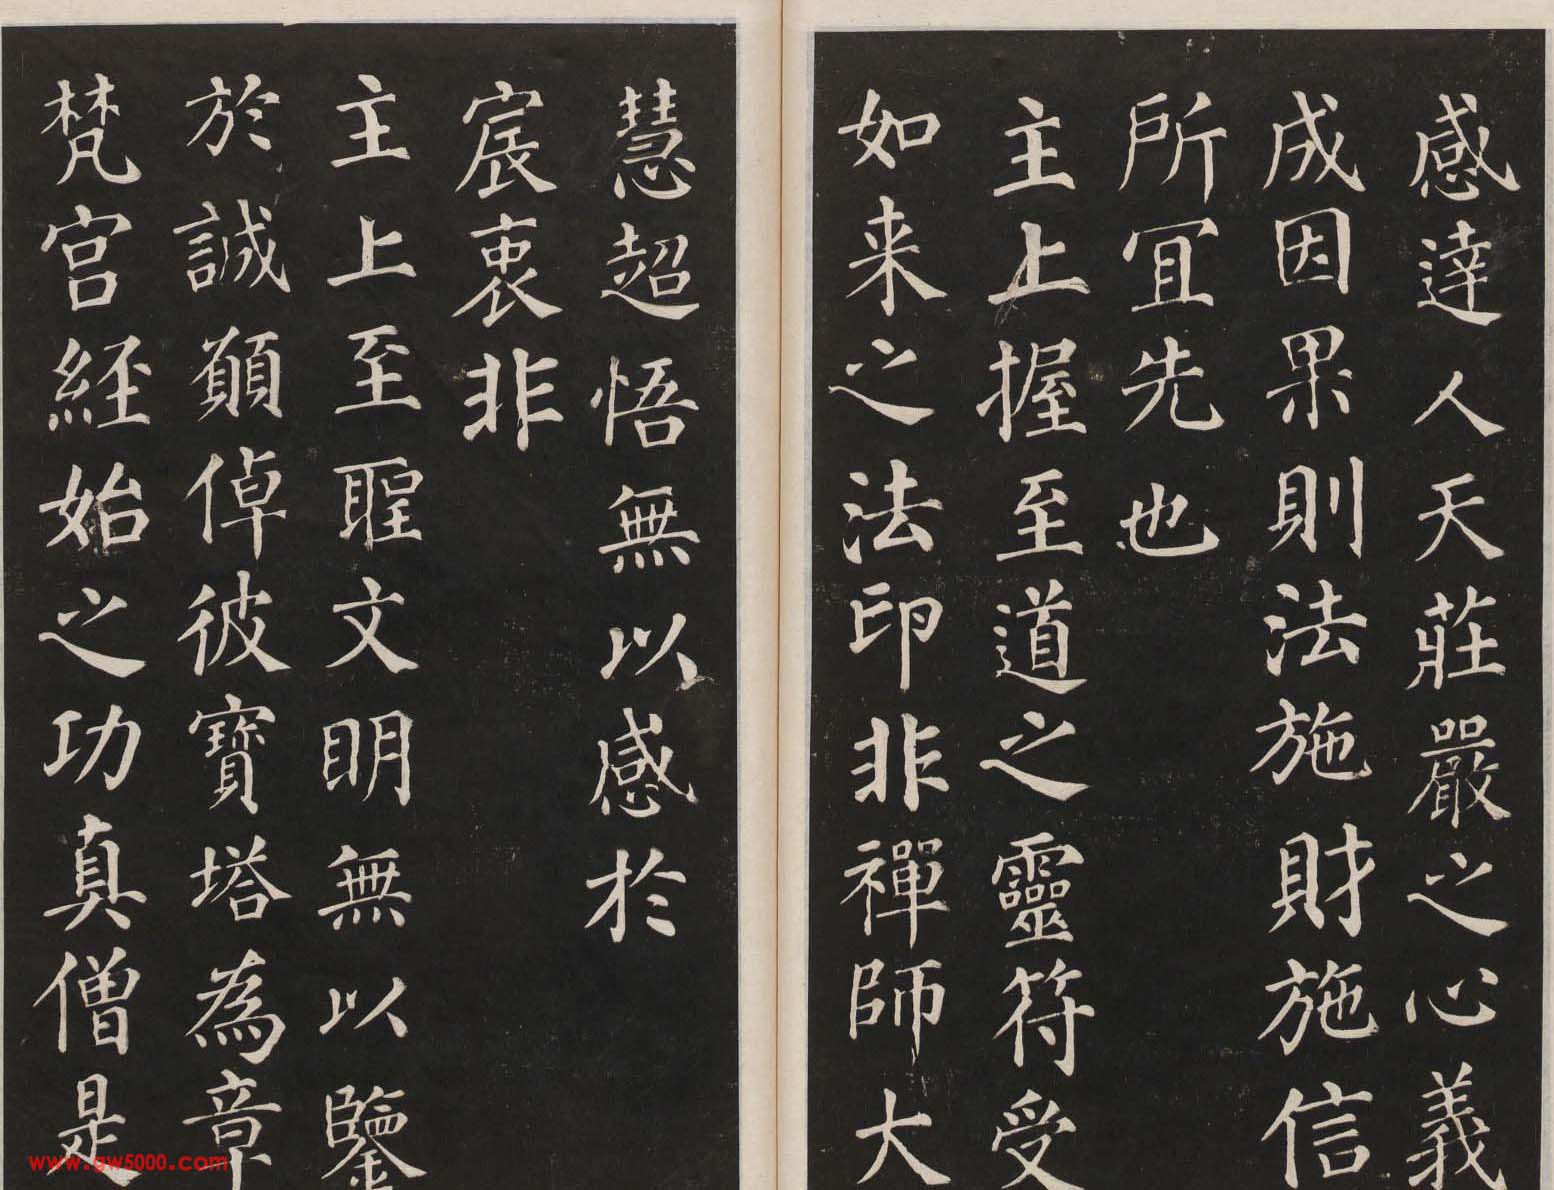 感達人天莊嚴之心義
成因果則法施財施信
所冝先也
主上握至道之靈符受
如来之法印非禪師大
慧超悟無以感於
宸衷非
主上至聖文明無以鑒
於誠願倬彼寶塔為章
梵宫經始之功真僧是
www.gw5000.com